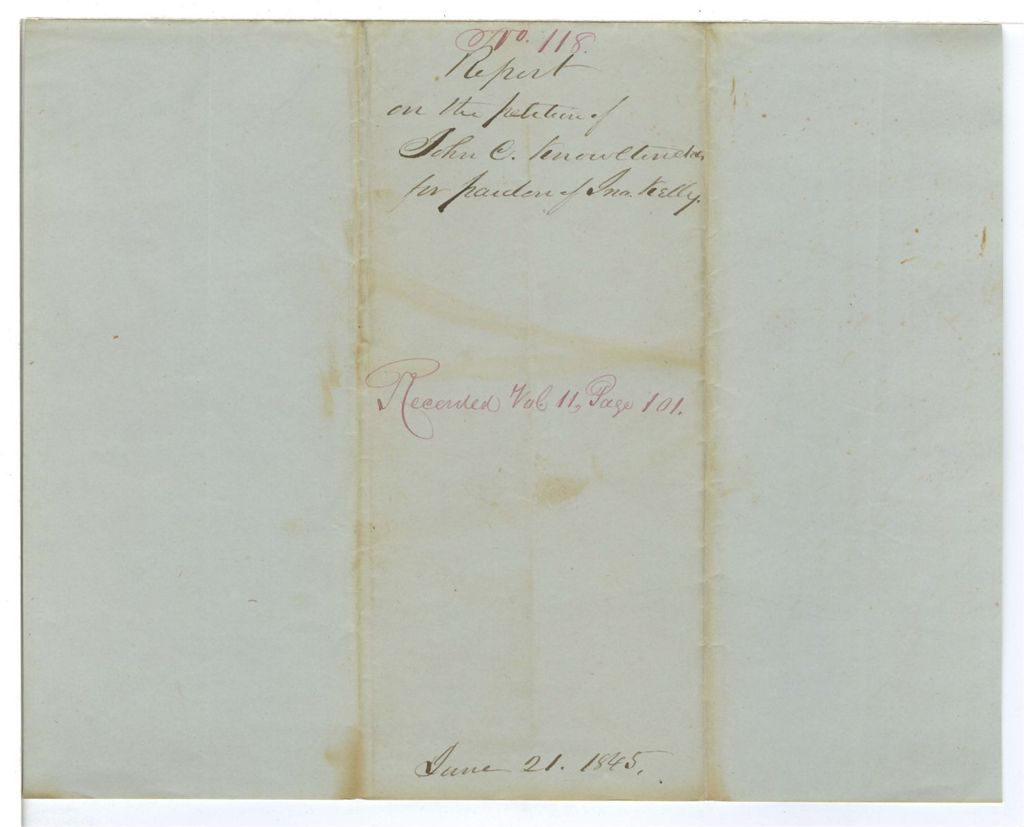 No. 118.
Report
on the petition of
John C. Knowlton &als
for pardon of Jno. Kelly.
Recorded Vol. 11, Page 101.
June 21. 1845.